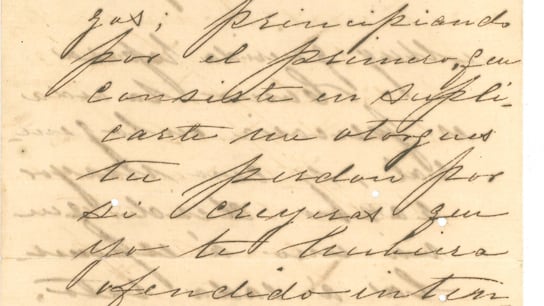 gos; principiando
por el primero, que
consiste en supli-
carte me otorgues
tu perdon por
si creyeras que
yo te hubiera
ofendido inten